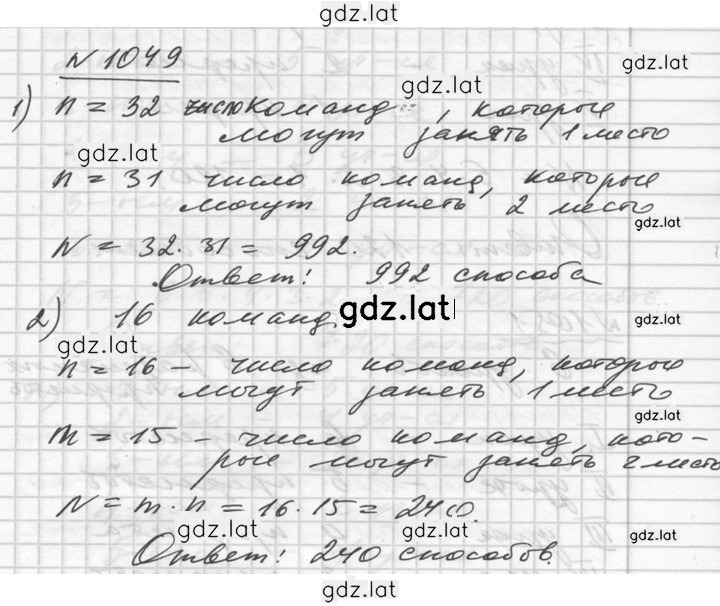 gdz.lat
№ 1049
gdz.lat
1) n = 32 число команд, которые
могут занять 1 место
gdz.lat
n = 31 число команд, которые
могут занять 2 место
gdz.lat
N = 32·31 = 992.
Ответ: 992 способа
2) 16 команд
gdz.lat
gdz.lat
n = 16 – число команд, которые
могут занять 1 место
gdz.lat
m = 15 – число команд, кото-
рые могут занять 2 место
N = m·n = 16·15 = 240.
gdz.lat
gdz.lat
Ответ: 240 способов.
gdz.lat